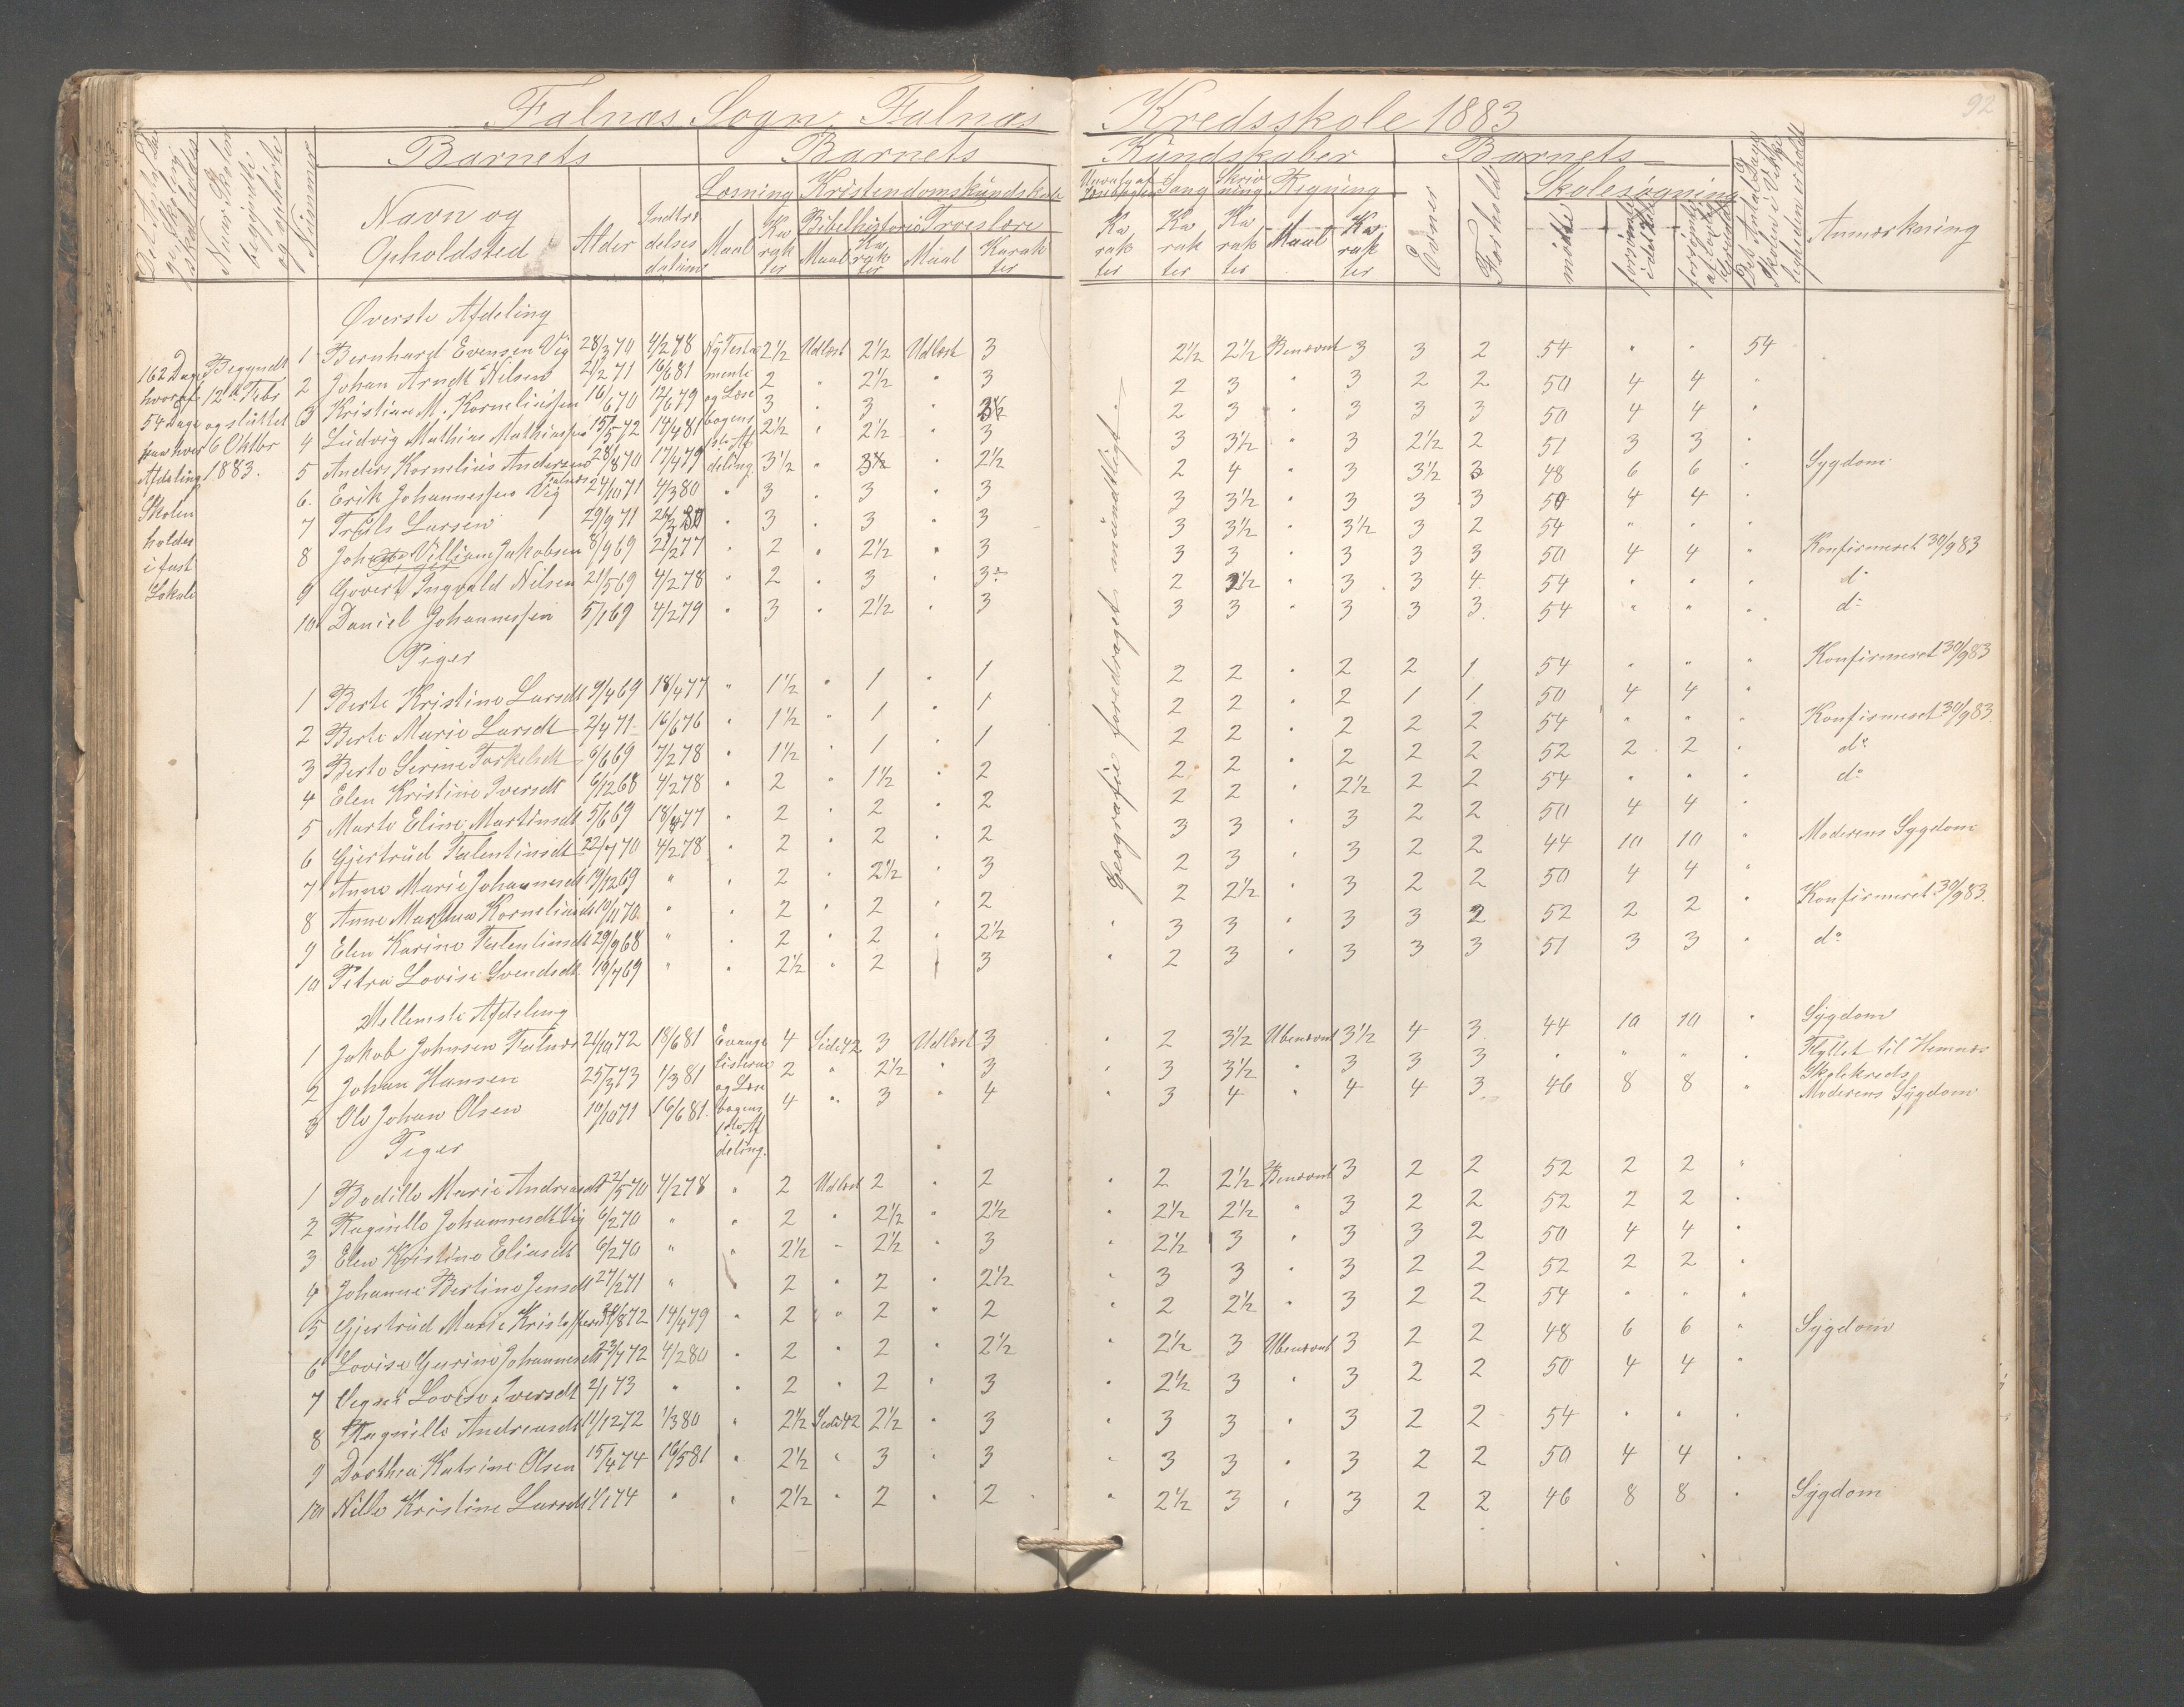 Falnæs Sogn. Falnæs Kredsskole 1883
92
Barnets Barnets Kundskaber Barnets
Nummer
Navn og Opholdsted
Alder
Indtrædelses datum
Læsning Kristendomskundskab
Maal Karakter
Bibelhistorie Troeslære
Maal Karakter Maal Karakter
Sang Skrivning Regning
Karakter Karakter Karakter Maal Karakter
Evner
Forhold
Skolesøgning
mødte
Anmærkning
162 Dage hvoraf 54 Dage paa hver Afdeling Skolen holdes i fast Lokale
Begyndt 12te Febr og sluttet 6 Oktbr 1883.
Geografie foredraget mundtligt.
Øverste Afdeling
1 Bernhard Evensen Vig 28/3 70 4/2 78 Ny Testa 2½ Udlæst 2½ Udlæst 3 2½ 2½ Benævnt 3 3 2 54 " " 54
2 Johan Arndt Nilsen 21/2 71 16/6 81 mente 2 " 2½ " 3 2 3 " 3 2 2 50 4 4 "
3 Kristian M. Korneliussen 16/6 70 12/6 79 og Læse 3 " 3 " 3½ 2 3 " 3 3 3 50 4 4 "
4 Ludvig Mathias Mathiassen 15/5 72 14/4 81 bogens 2½ " 2½ " 3 3 3½ " 3 2½ 2 51 3 3 "
5 Anders Kornelius Andersen Falnæs 28/8 70 17/4 79 deling. 3½ " 3½ " 2½ 2 4 " 3 3½ 3 48 6 6 " Sygdom
6. Erik Johannessen Vig 24/10 71 4/3 80 " 3 " 3 " 3 3 3½ " 3 3 3 50 4 4 "
7 Truls Larsen 29/9 71 " 3 " 3 " 3 3 3½ " 3½ 3 2 54 " " "
8 Johan Villiam Jakobsen 8/9 69 21/2 77 " 2 " 2½ " 3 3 3 " 3 3 3 50 4 4 " Konfirmeret 30/9 83
9 Govert Ingvald Nilsen 21/5 69 4/2 78 " 2 " 3 " 3÷ 2 2½ " 3 3 4 54 " " " do
10 Daniel Johannessen 5/1 69 4/2 79 " 3 " 2½ " 3 3 3 " 3 3 3 54 " " " do
Piger
1 Berte Kristine Larsdt 9/4 69 18/4 77 " 1½ " 1 " 1 2 2 " 2 2 1 54 " " " Konfirmeret 30/9 83
2 Berte Marie Larsdt 2/4 71 16/6 76 " 1½ " 1 " 1 2 2 " 2 1 1 50 4 4 "
3 Berte Serine Torkelsdt 6/1 69 7/2 78 " 1½ " 1 " 1 2 2 " 2 2 2 54 " " " Konfirmeret 30/9 83.
4 Elen Kristine Iversdt 6/12 68 4/2 78 " 2 " 1½ " 2 2 2 " 2 2 2 52 2 2 " do
5 Marte Eline Martinsdt 5/6 69 18/4 77 " 2 " 2 " 2 2 2 " 2½ 2 2 54 " " " do
6 Gjertrud Falentinsdt 22/7 70 4/2 78 " 2 " 2 " 2 3 3 " 3 2 2 50 4 4 "
7 Anne Marie Johannesdt 19/12 69 " " 2 " 2½ " 3 2 3 " 3 2 2 44 10 10 " Moderens Sygdom
8 Anne Marthea Korneliusdt 10/11 70. " " 2 " 2 " 2 2 2½ " 3 2 2 50 4 4 "
9 Elen Karine Falentinsdt 29/9 68 " " 2 " 2 " 2½ " 3 3 " 3 3 2 52 2 2 " Konfirmeret 30/9 83.
10 Petra Lovise Svendsdt 19/7 69 " " 2½ " 2 " 3 " 2 3 " 3 3 3 51 3 3 " do
Mellemste Afdeling
1 Jakob Johnsen Falnæs 21/10 72 18/6 81 Evange 4 Side 42 3 Udlæst 3 " 2 3½ Ubenævnt 3½ 4 3 44 10 10 " Sygdom
2 Johan Hansen 25/3 73 1/3 81 listerne 2 " 2½ " 3 " 3 3½ " 3 3 3 " " " Flyttet til Hemnæs Skolekreds
3 Ole Johan Olsen 10/10 71 16/6 81. og Læse bogens 1ste Af deling. 4 " 3 " 4 " 3 4 " 4 4 3 46 8 8 " Moderens Sygdom
Piger
1 Bodille Marie Andreasdt 22/5 70 4/2 78 " 2 Udlæst 2 " 2 " 2 2½ Benævnt 3 2 2 52 2 2 "
2 Ragnille Johannesdt Vig 6/2 70 " " 2 " 2½ " 2½ " 2½ 2½ " 3 2 2 52 2 2 "
3 Elen Kristine Eliasdt 6/2 70 " " 2½ " 2½ " 3 " 2½ 3 " 3 3 2 50 4 4 "
4 Johanne Bertine Jensdt 27/2 71 " 2 " 2 " 2½ " 3 3 " 3 2 2 52 2 2 "
5 Gjertrud Marie Kristoffersdt 14/4 79 " 2 " 2 " 2 2 2½ " 3 2 2 54 " " "
6 Lovise Gurine Johannesdt 23/4 72 4/2 80 " 2 " 2 " 2½ " 2½ 3 Ubenævnt 3 2 2 48 6 6 " Sygdom
7 Lovise Iversdt 2/1 73 " " 2 " 2 " 3 " 2½ 3 " 3 2 2 50 4 4 "
8 Ragnille Andreasdt 11/12 72 1/3 80 " 2½ Side 42 2½ " 3 " 3 3 " 3 2 2 54 " " "
9 Dorthea Katrine Olsen 15/4 74 16/5 81 " 2½ " 3 " 3 " 3 3 " 3 2 2 50 4 4 "
10 Nille Kristine Larsdt 1/1 74 " " 2½ " 2 " 2 " 2½ 3 " 3 2 2 46 8 8 " Sygdom